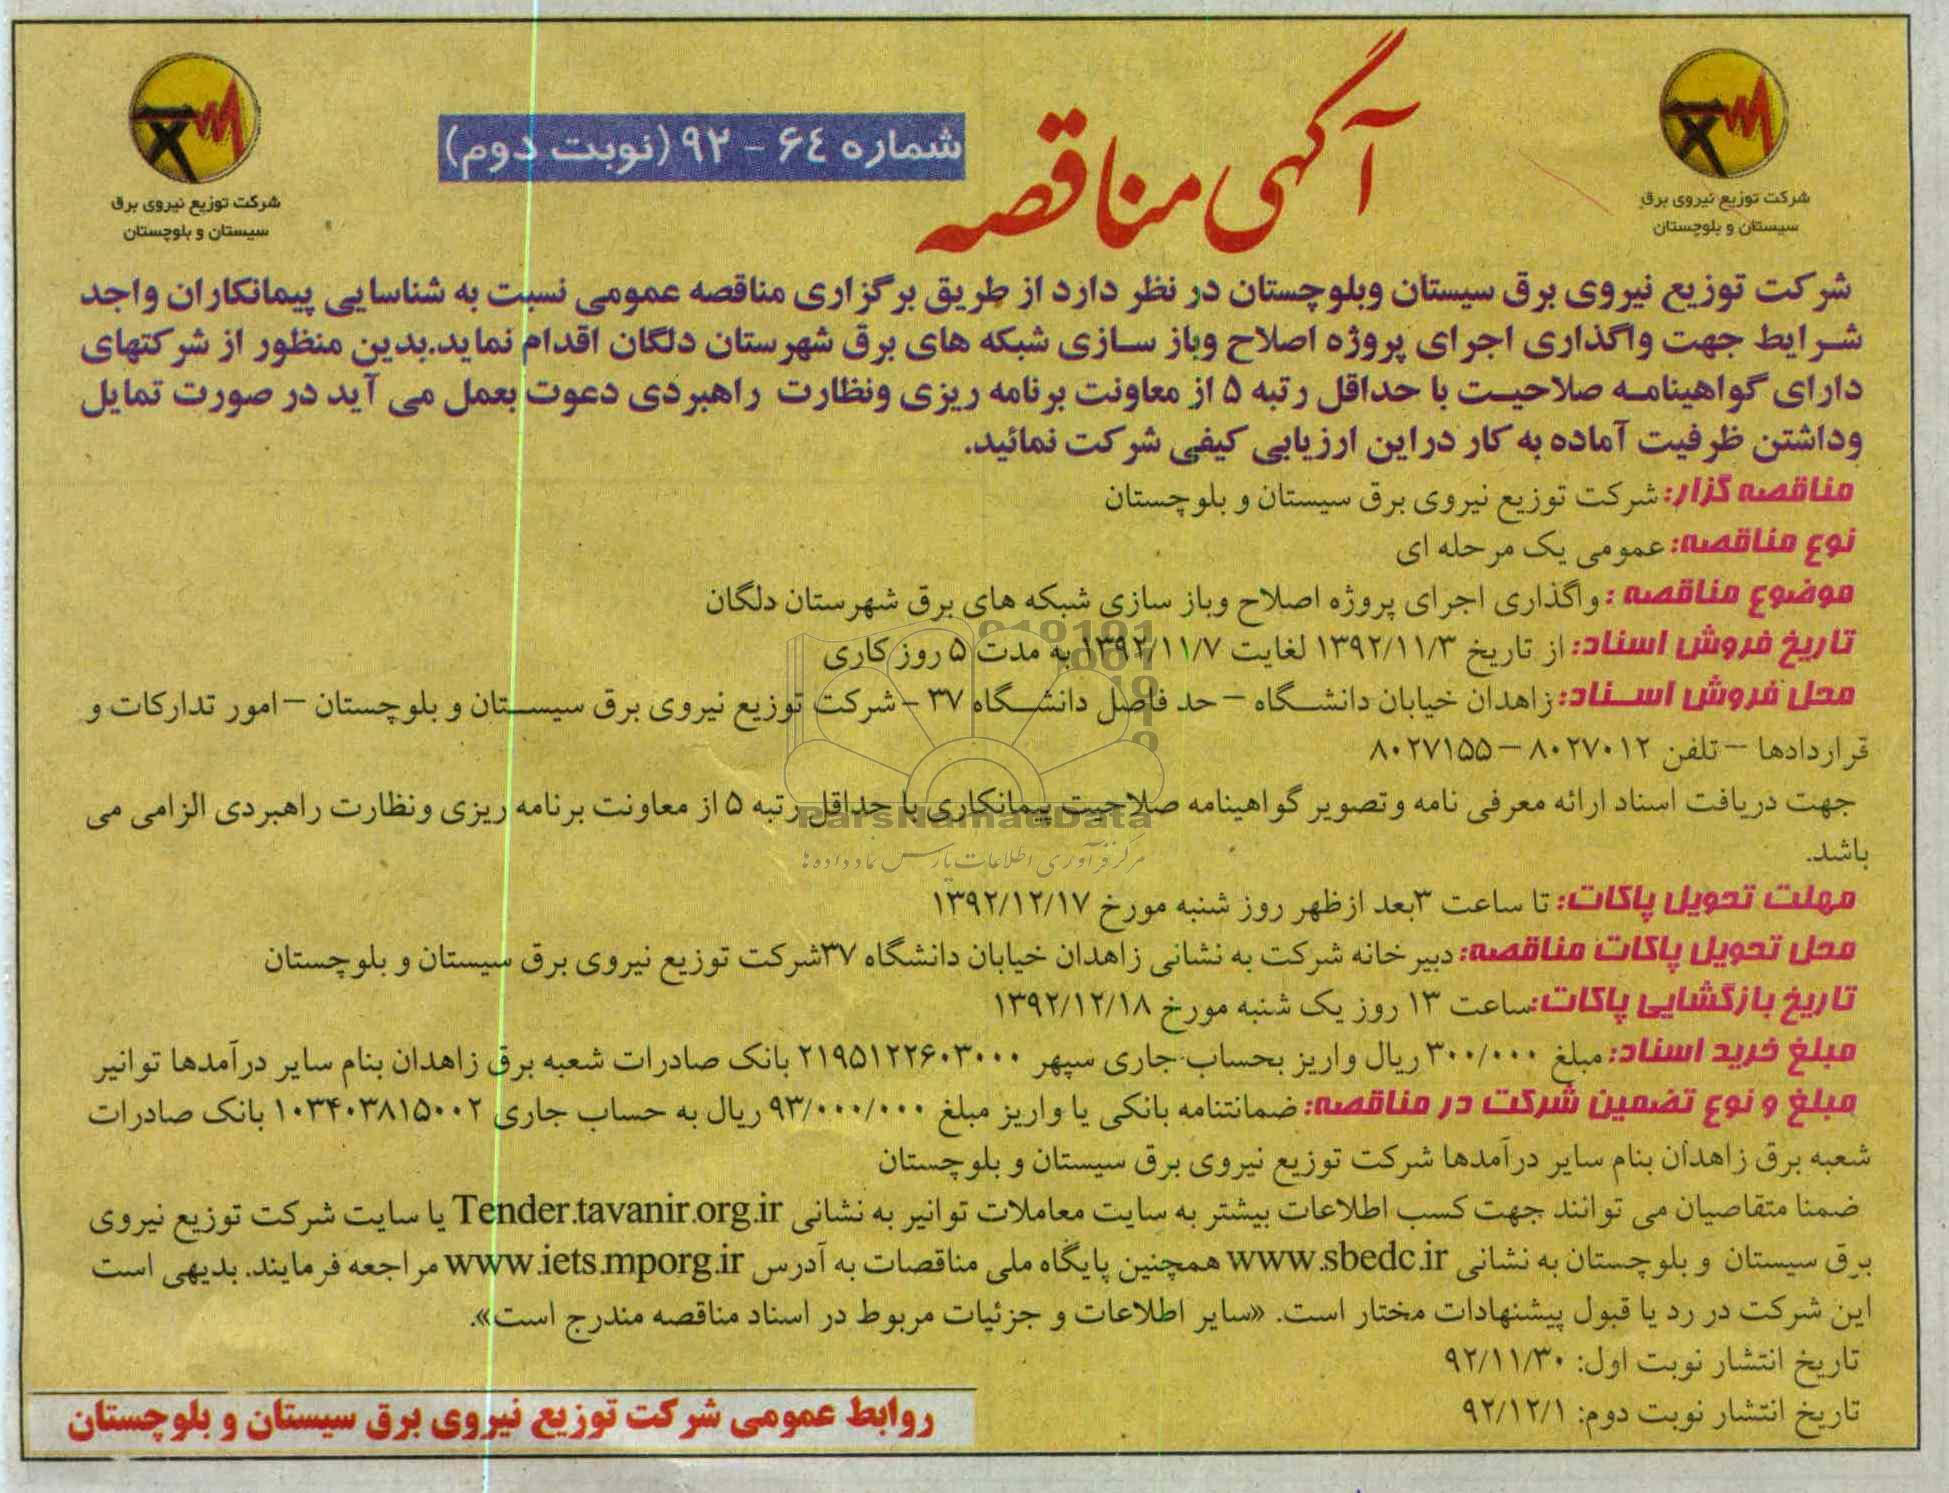 شرکت توزیع نیروی برق
سیستان و بلوچستان
آگهی مناقصه
شماره ٦٤ - ۹۲ (نوبت دوم)
شرکت توزیع نیروی برق
سیستان و بلوچستان
شرکت توزیع نیروی برق سیستان وبلوچستان در نظر دارد از طریق برگزاری مناقصه عمومی نسبت به شناسایی پیمانکاران واجد
شرایط جهت واگذاری اجرای پروژه اصلاح وباز سازی شبکه های برق شهرستان دلگان اقدام نماید.بدین منظور از شرکتهای
دارای گواهینامه صلاحیت با حداقل رتبه ۵ از معاونت برنامه ریزی ونظارت راهبردی دعوت بعمل می آید در صورت تمایل
وداشتن ظرفیت آماده به کار دراین ارزیابی کیفی شرکت نمائید.
مناقصه گزار: شرکت توزیع نیروی برق سیستان و بلوچستان
نوع مناقصه: عمومی یک مرحله ای
موضوع مناقصه : واگذاری اجرای پروژه اصلاح وباز سازی شبکه های برق شهرستان دلگان
تاریخ فروش اسناد: از تاریخ ۱۳۹۲/۱۱/۳ لغایت ۱۳۹۲/۱۱/۷ به مدت ۵ روز کاری
محل فروش اسناد: زاهدان خیابان دانشگاه – حد فاصل دانشگاه ۳۷ - شرکت توزیع نیروی برق سیستان و بلوچستان – امور تدارکات و
قراردادها – تلفن ۸۰۲۷۰۱۲ – ۸۰۲۷۱۵۵
جهت دریافت اسناد ارائه معرفی نامه وتصویر گواهینامه صلاحیت پیمانکاری با حداقل رتبه ۵ از معاونت برنامه ریزی ونظارت راهبردی الزامی می
باشد.
ParsNamadData
مرکز فرآوری اطلاعات پارس نماد داده ها
مهلت تحویل پاکات: تا ساعت ۳بعد ازظهر روز شنبه مورخ ۱۳۹۲/۱۲/۱۷
محل تحویل پاکات مناقصه: دبیرخانه شرکت به نشانی زاهدان خیابان دانشگاه ۳۷شرکت توزیع نیروی برق سیستان و بلوچستان
تاریخ بازگشایی پاکات:ساعت ۱۳ روز یک شنبه مورخ ۱۳۹۲/۱۲/۱۸
مبلغ خرید اسناد: مبلغ ۳۰۰/۰۰۰ ریال واریز بحساب جاری سپهر ۲۱۹۵۱۲۲۶۰۳۰۰۰ بانک صادرات شعبه برق زاهدان بنام سایر درآمدها توانیر
مبلغ و نوع تضمین شرکت در مناقصه: ضمانتنامه بانکی یا واریز مبلغ ۹۳/۰۰۰/۰۰۰ ریال به حساب جاری ۱۰۳۴۰۳۸۱۵۰۰۲ بانک صادرات
شعبه برق زاهدان بنام سایر درآمدها شرکت توزیع نیروی برق سیستان و بلوچستان
ضمنا متقاصیان می توانند جهت کسب اطلاعات بیشتر به سایت معاملات توانیر به نشانی Tender.tavanir.org.ir یا سایت شرکت توزیع نیروی
برق سیستان و بلوچستان به نشانی www.sbedc.ir همچنین پایگاه ملی مناقصات به آدرس www.iets.mporg.ir مراجعه فرمایند. بدیهی است
این شرکت در رد یا قبول پیشنهادات مختار است. «سایر اطلاعات و جزئیات مربوط در اسناد مناقصه مندرج است».
تاریخ انتشار نوبت اول: ۹۲/۱۱/۳۰
تاریخ انتشار نوبت دوم: ۹۲/۱۲/۱
روابط عمومی شرکت توزیع نیروی برق سیستان و بلوچستان